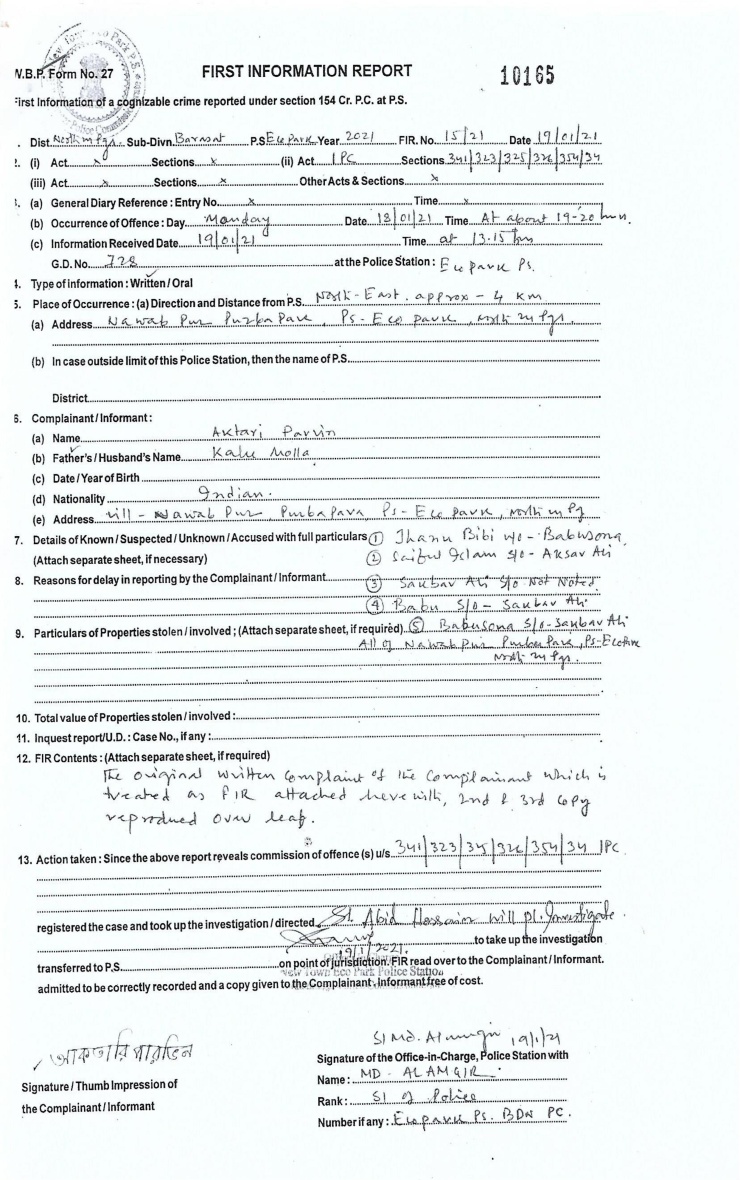 W.B.P. Form No. 27
FIRST INFORMATION REPORT
10165
First Information of a cognizable crime reported under section 154 Cr. P.C. at P.S.
1. Dist. North 24 Pgs. Sub-Divn. Barasat P.S Eco park Year 2021 FIR. No. 15/21 Date 19/01/21
2. (i) Act x Sections x (ii) Act IPC Sections 341/323/325/326/354/34
(iii) Act x Sections x Other Acts & Sections x
3. (a) General Diary Reference : Entry No. x Time x
(b) Occurrence of Offence : Day Monday Date 18/01/21 Time At about 19-20 hrs.
(c) Information Received Date 19/01/21 Time at 13.15 hrs
G.D. No. 728 at the Police Station : Eco park Ps.
4. Type of information : Written / Oral
5. Place of Occurrence : (a) Direction and Distance from P.S. North-East. approx - 4 km
(a) Address Nawab Pur Purba Para, Ps- Eco park, North 24 Pgs.
(b) In case outside limit of this Police Station, then the name of P.S.
District
6. Complainant / Informant :
(a) Name Aktari Parvin
(b) Father's / Husband's Name Kalu Molla
(c) Date / Year of Birth
(d) Nationality Indian.
(e) Address vill - Nawab Pur Purbapara Ps- Eco park, North 24 Pgs
7. Details of Known / Suspected / Unknown / Accused with full particulars ① Jhanu Bibi w/o - Babusona,
(Attach separate sheet, if necessary) ② Saiful Islam s/o - Aksar Ali
8. Reasons for delay in reporting by the Complainant / Informant ③ Saubar Ali s/o Not Noted.
④ Babu s/o - Saubar Ali
9. Particulars of Properties stolen / involved ; (Attach separate sheet, if required) ⑤ Babusona s/o - Saubar Ali
All of Nawabpur Purba Para, Ps- Eco Park
North 24 Pgs.
10. Total value of Properties stolen / involved :
11. Inquest report/U.D. : Case No., if any :
12. FIR Contents : (Attach separate sheet, if required)
The original written complaint of the complainant which is
treated as FIR attached herewith, 2nd & 3rd copy
reproduced over leaf.
13. Action taken : Since the above report reveals commission of offence (s) u/s 341/323/325/326/354/34 IPC
registered the case and took up the investigation / directed SI. Abid Hossain will pl. Investigate.
to take up the investigation
19/1/2021.
transferred to P.S. on point of jurisdiction. FIR read over to the Complainant / Informant.
New Town Eco Park Police Station
admitted to be correctly recorded and a copy given to the Complainant, Informant free of cost.
আকতারি পারভিন
SI Md. Alamgir 19/1/21
Signature of the Office-in-Charge, Police Station with
Signature / Thumb Impression of
the Complainant / Informant
Name : MD. ALAMGIR
Rank : SI of Police
Number if any : Eco park Ps. BDN PC.